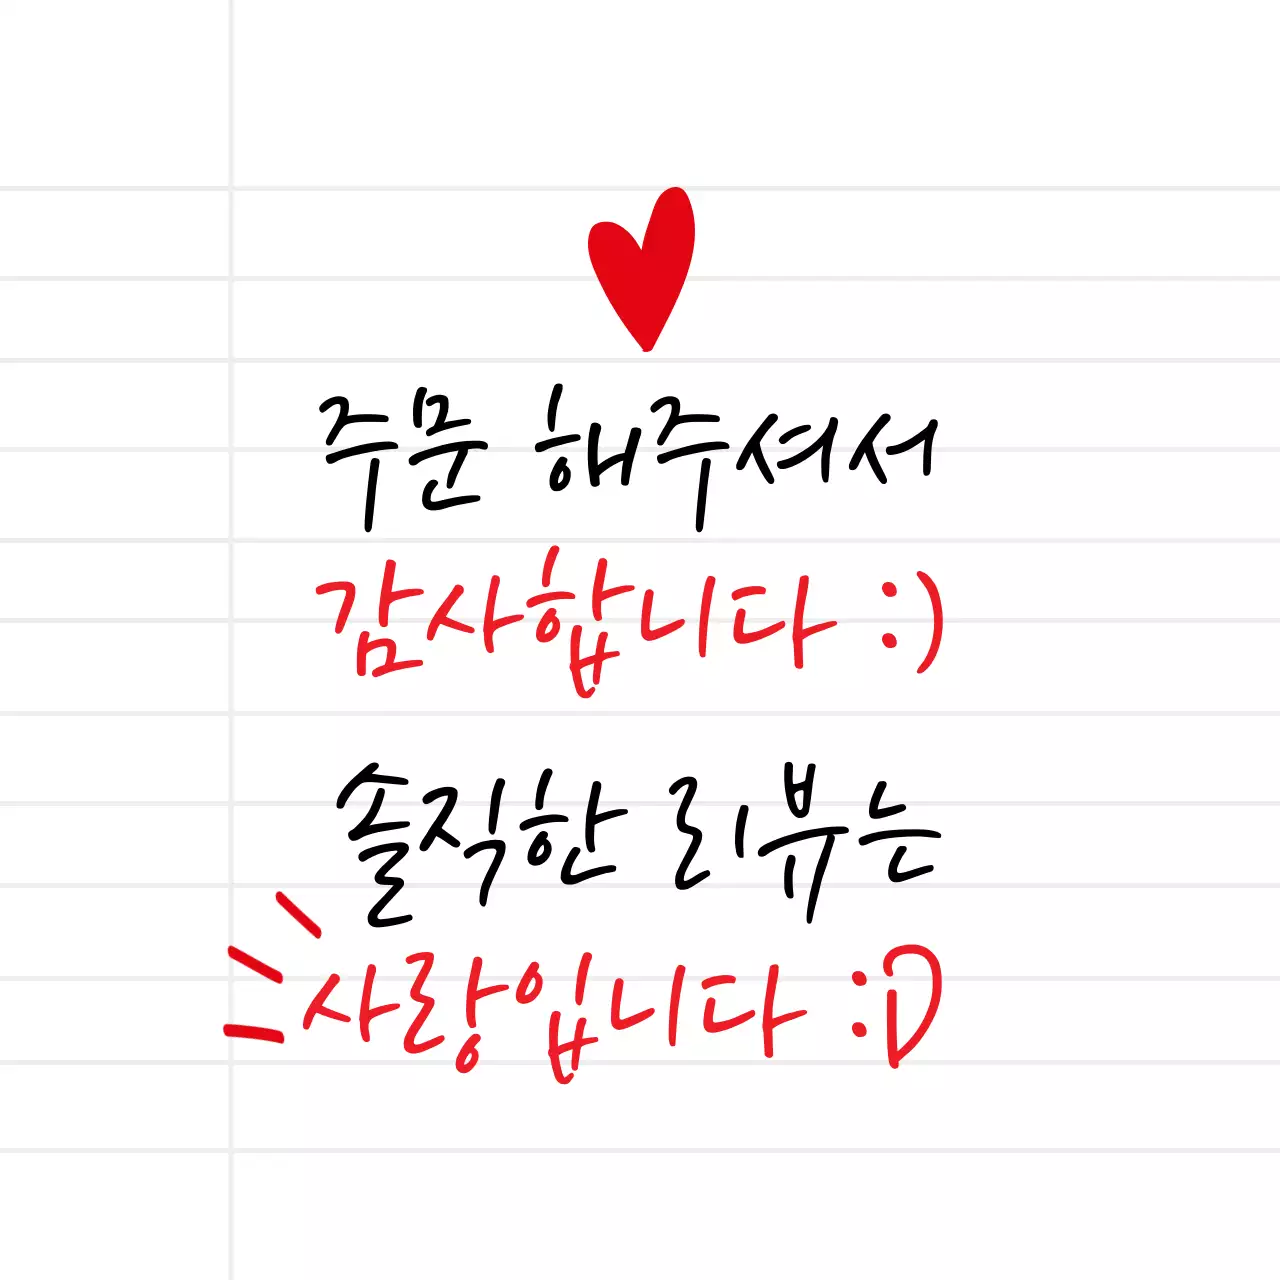 주문 해주셔서
감사합니다 :)
솔직한 리뷰는
사랑입니다 :D